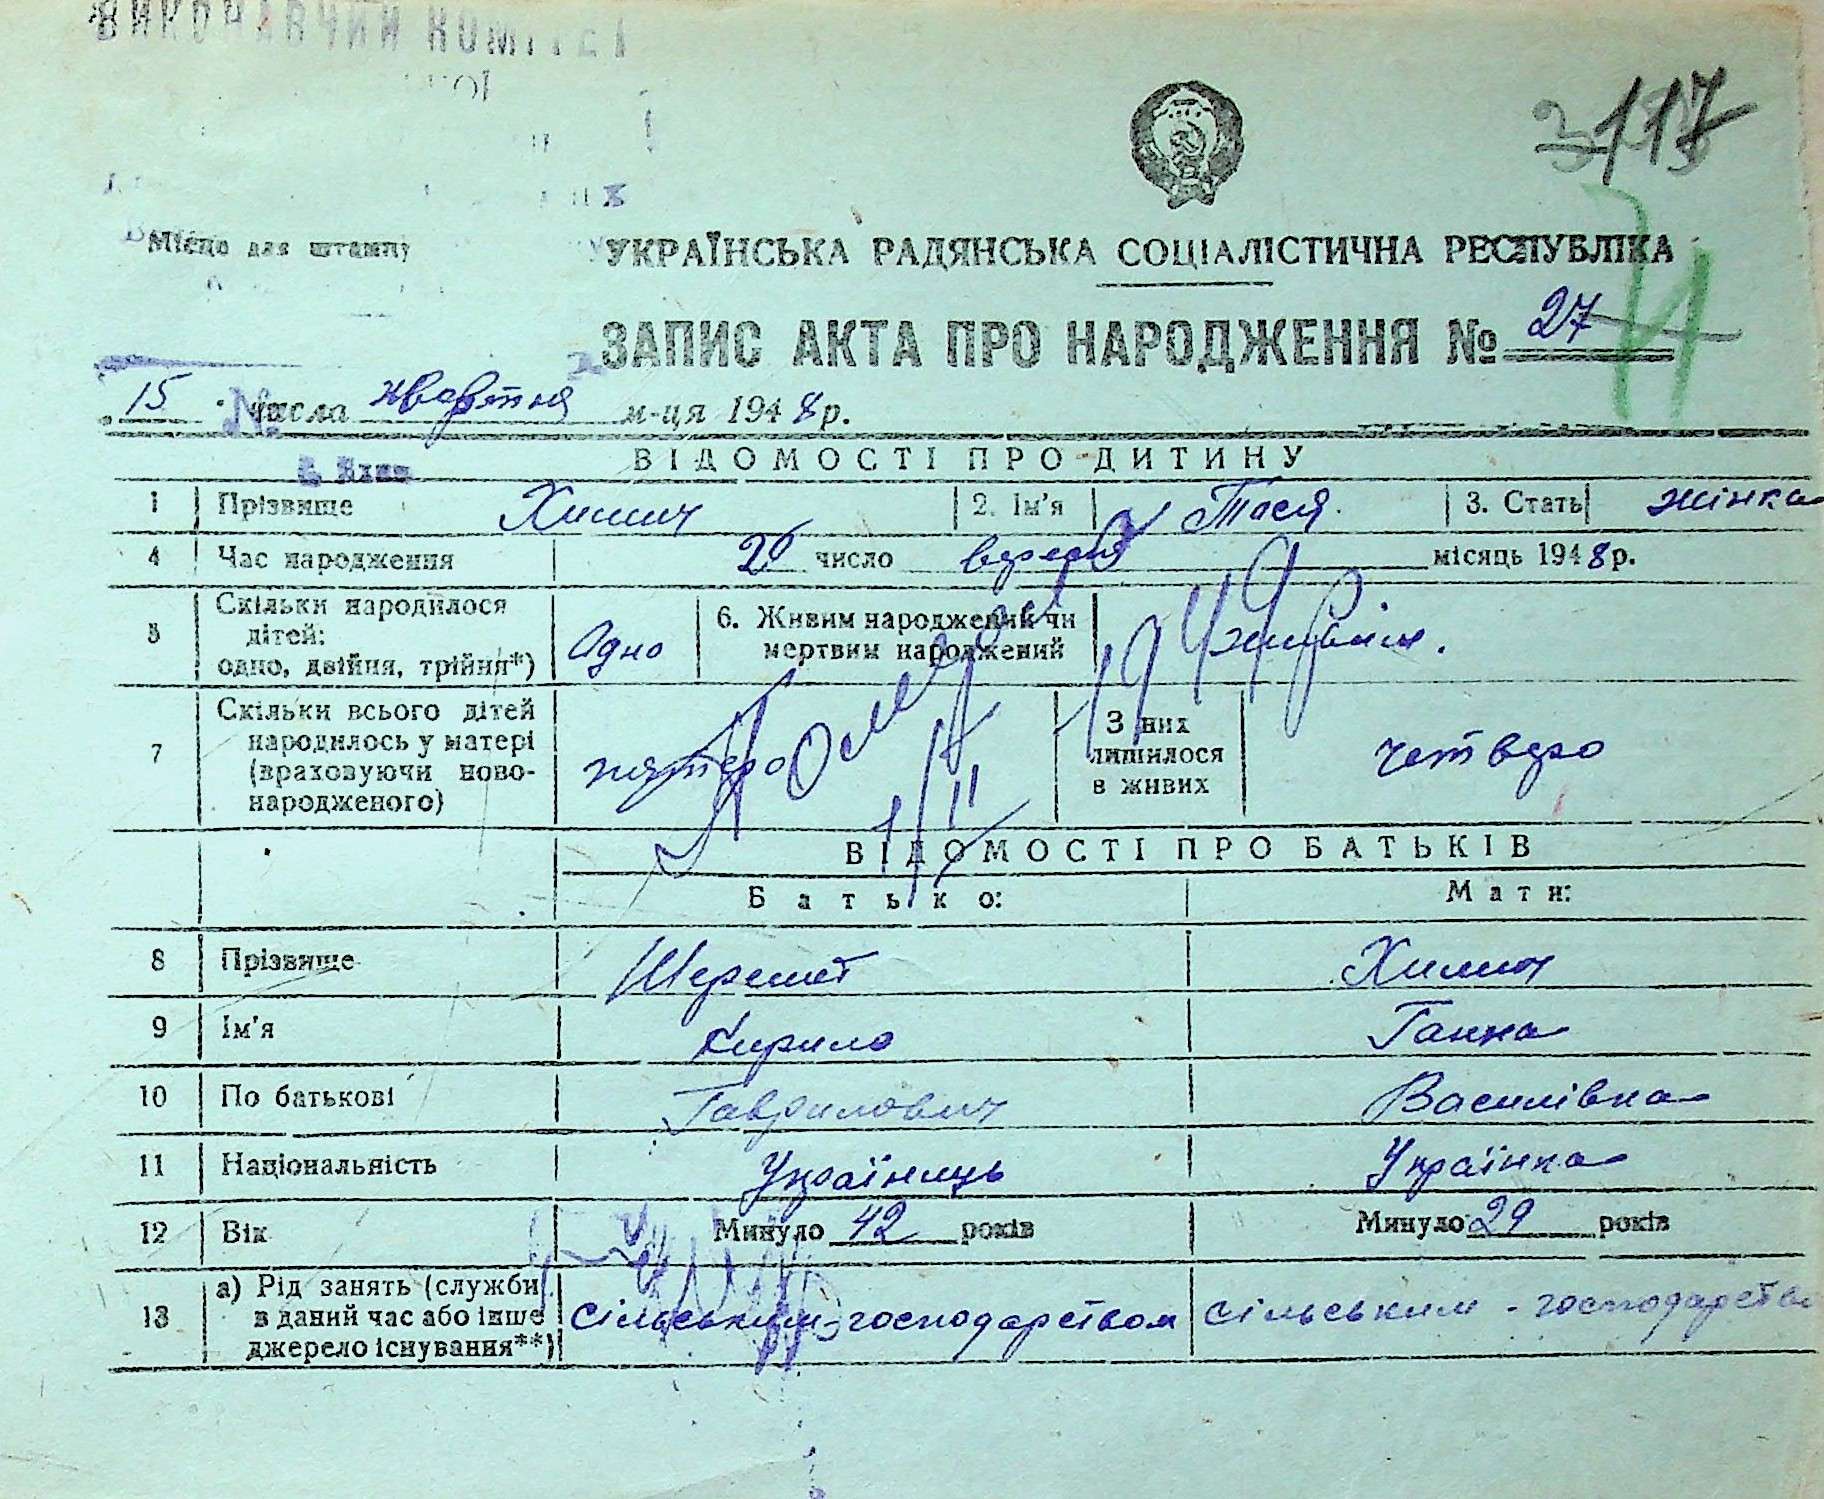 ВИКОНАВЧИЙ КОМІТЕТ
3117
Місце для штампу
УКРАЇНСЬКА РАДЯНСЬКА СОЦІАЛІСТИЧНА РЕСПУБЛІКА
ЗАПИС АКТА ПРО НАРОДЖЕННЯ № 27
15 числа жовтня м-ця 1948 р.
№
ВІДОМОСТІ ПРО ДИТИНУ
1 Прізвище Химич 2. Ім'я Тася. 3. Стать жінка
4 Час народження 20 число вересня місяць 1948 р.
5 Скільки народилося дітей: одно, двійня, трійня*) Одно 6. Живим народжений чи мертвим народжений живим.
7 Скільки всього дітей народилось у матері (враховуючи новонародженого) пятеро З них лишилося в живих четверо
Помер 1/II 1949 р.
ВІДОМОСТІ ПРО БАТЬКІВ
Батько: Мати:
8 Прізвище Шеремет Химич
9 Ім'я Кирило Ганна
10 По батькові Гаврилович Василівна
11 Національність Українець Українка
12 Вік Минуло 42 років Минуло 29 років
13 а) Рід занять (служби в даний час або інше джерело існування**) сільським-господарством сільським-господарство